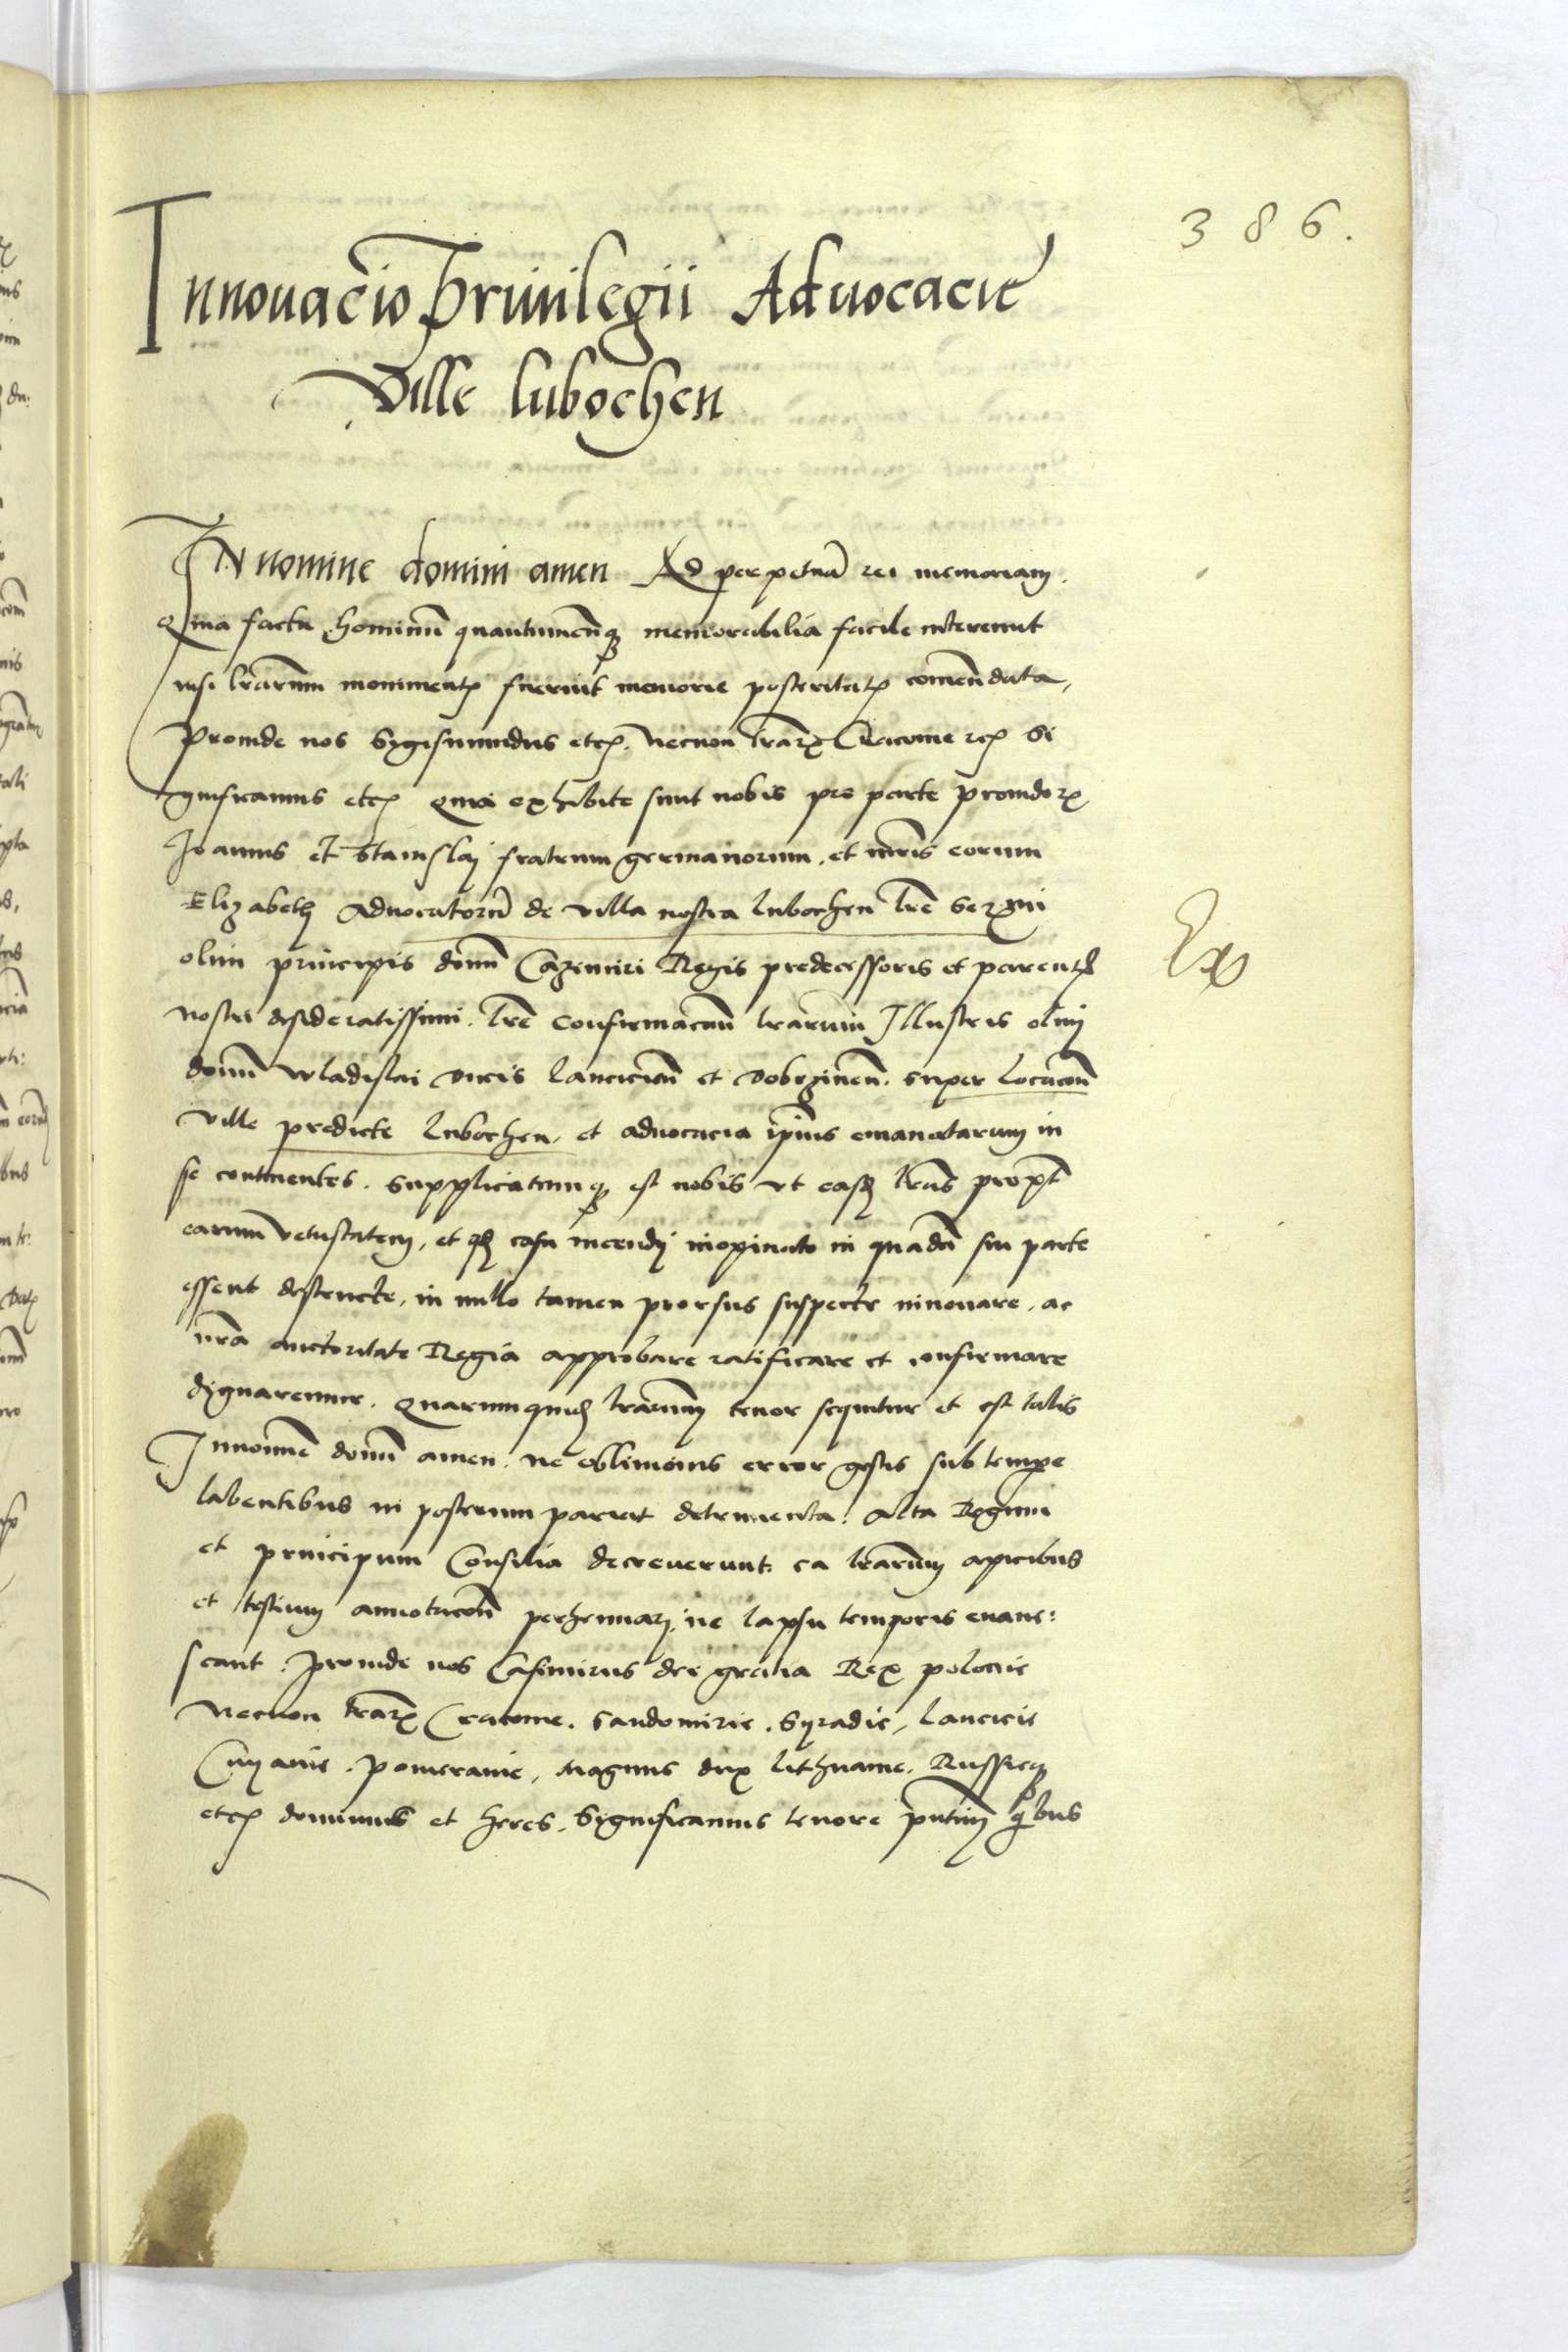 386.
Innouacio Priuilegii Aduocacie
Ville Lubochen
In nomine domini amen Ad perpetuã rei memoriam.
Quia facta hominũ quantumcũq memorabilia facile intereunt
nisi lrarum monimentis fuerint memorie posteritatis comendata,
Proinde nos Sygismundus etc. Necnon trarũ Cracouie etc Si
gnificamus etc Quia exhibite sunt nobis pro parte prouidorũ
Joannis et Stanislaj fratrum germanorum, et mris eorum
Elizabeth Aduocatorũ de villa nostra Lubochen lre Serᵐⁱ
olim principis domi Cazimiri Regis predecessoris et parentis
nostri desideratissimi. lre confirmacionũ lrarum Illustris olim
domi wladislai ducis Lancicien et dobrzinen. super locacõn
ville predicte Lubochen. et aduocacia ipius emanatarum in
se continentes. Supplicatumq est nobis vt easdẽ lras propt
earum vetustatem, et qd casu incendij inopinato in quadã sui parte
essent destructe, in nullo tamen prorsus suspecte innouare, ac
nra auctoritate Regia approbare ratificare et confirmare
dignaremur. Quarumquid lrarum tenor sequitur et est talis
In nomine domi amen. Ne obliuionis error gestis sub tempe
labentibus in posterum pariat detrimenta: Alta Regum
et principum Consilia decreuerunt ea lrarum apicibus
et testium annotacõn perhennari, ne lapsu temporis euane:
scant. Proinde nos Casimirus dei gracia Rex polonie
Necnon trarũ Cracouie. Sandomirie. Syradie, Lancicie
Cuyauie. Pomeranie, Magnus dux Lithuanie. Russieq
etc dominus et heres. Significamus tenore pntium qibus
Ex